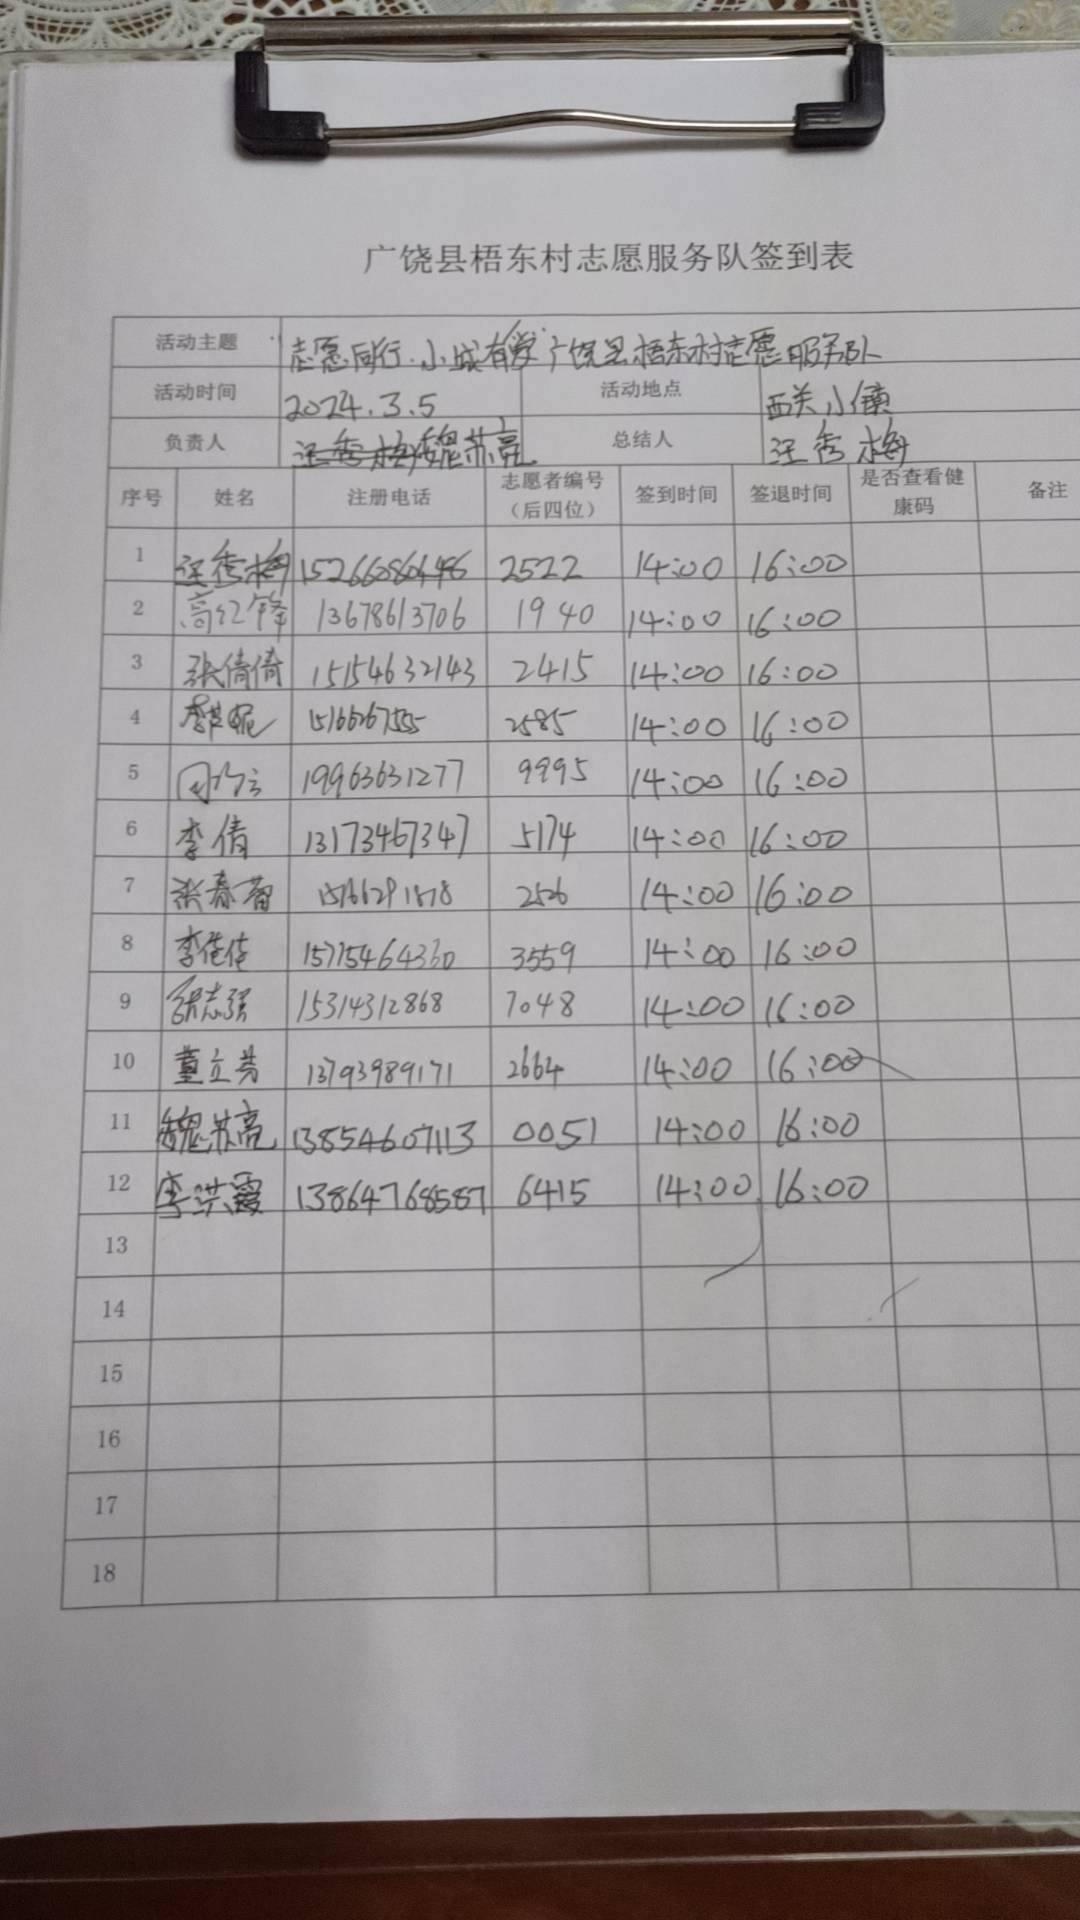 广饶县梧东村志愿服务队签到表
活动主题 志愿同行·小城有爱 广饶县梧东村志愿服务队
活动时间 2024.3.5 活动地点 西关小镇
负责人 汪秀梅 魏苏亮 总结人 汪秀梅
序号 姓名 注册电话 志愿者编号（后四位） 签到时间 签退时间 是否查看健康码 备注
1 汪秀梅 15266080648 2522 14:00 16:00
2 高红锋 13678613706 1940 14:00 16:00
3 张倩倩 15154632143 2415 14:00 16:00
4 2585 14:00 16:00
5 19963631277 9995 14:00 16:00
6 李倩 13173467347 5174 14:00 16:00
7 张春蕾 2526 14:00 16:00
8 李佳佳 15715464360 3559 14:00 16:00
9 张志强 15314312868 7048 14:00 16:00
10 董立芳 13793989171 2664 14:00 16:00
11 魏苏亮 13854607113 0051 14:00 16:00
12 李洪霞 13864768587 6415 14:00 16:00
13
14
15
16
17
18